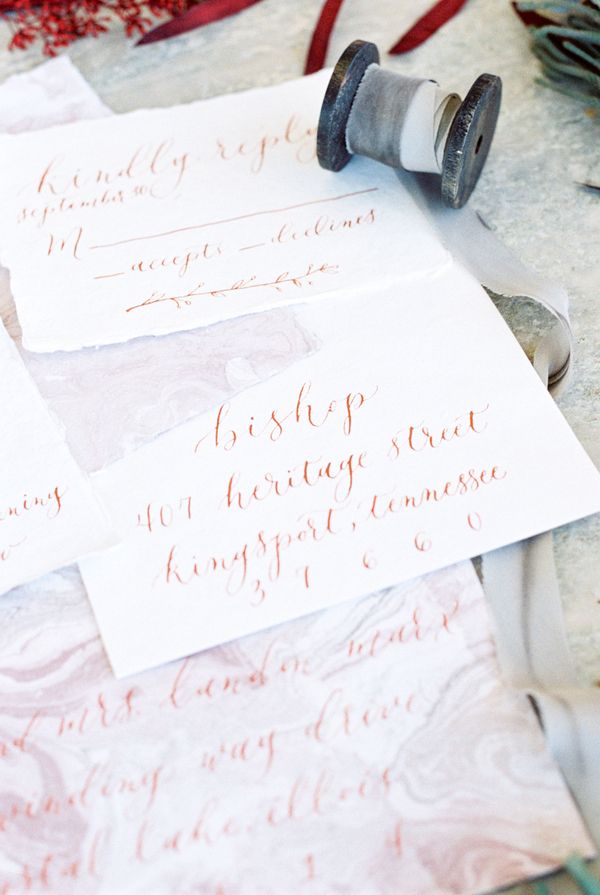 kindly reply
september 30
M
_accepts _declines
ening
bishop
407 heritage street
kingsport, tennessee
3 7 6 6 0
mrs. landon marx
winding way drive
lake, illois
1 4